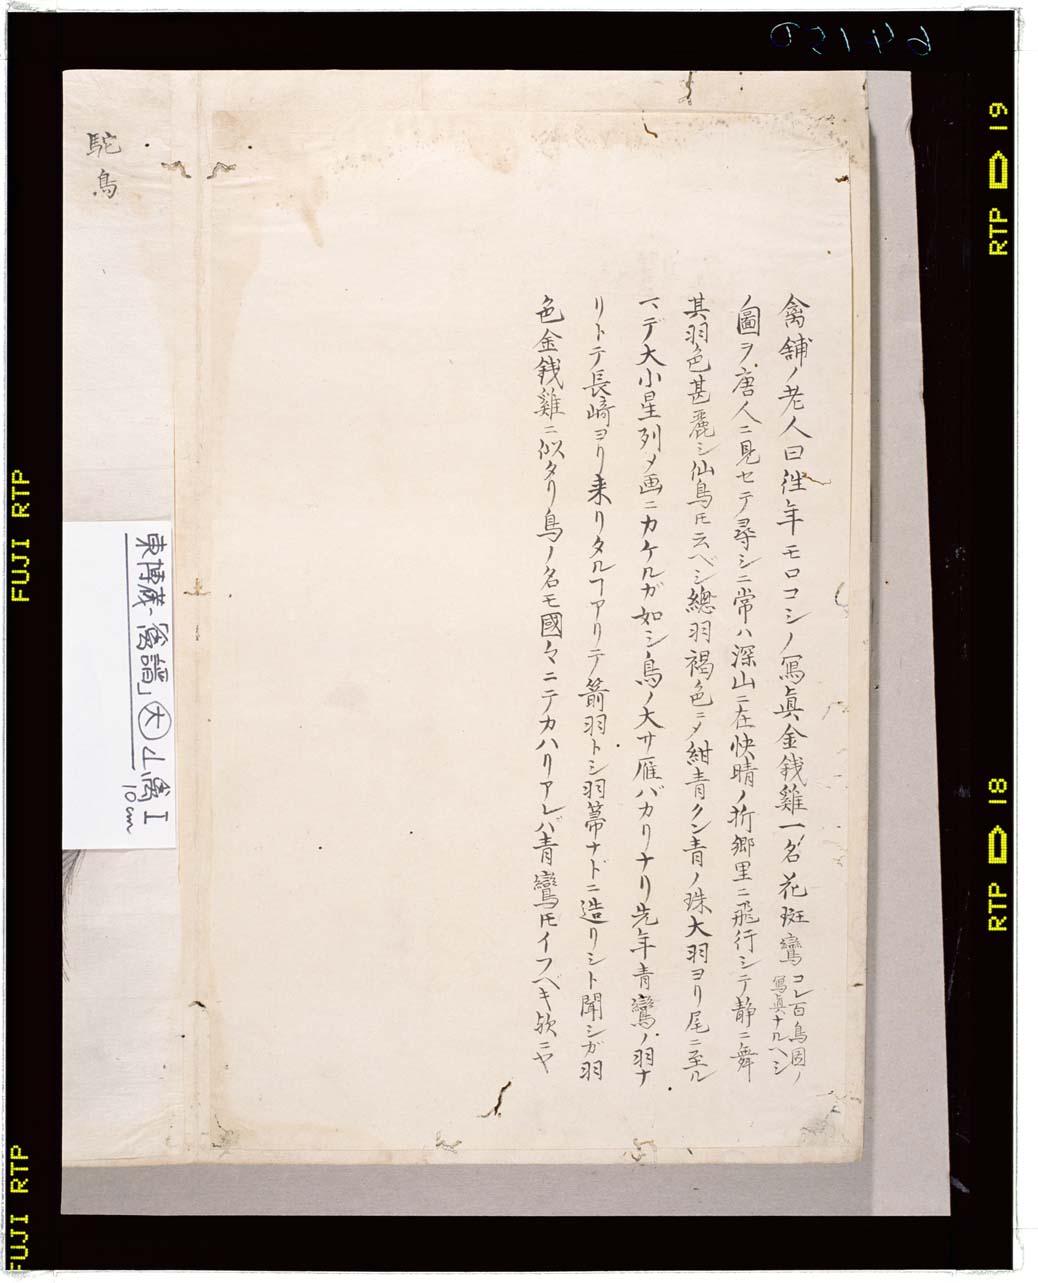 禽舗ノ老人曰徃年モロコシノ冩眞金銭雞一名花斑鸞コレ百鳥圖ノ
冩眞ナルヘシ
ノ圖ヲ唐人ニ見セテ尋シニ常ハ深山ニ在快晴ノ折郷里ニ飛行シテ静ニ舞
其羽色甚麗シ仙鳥𪜈云ベシ總羽褐色ニメ紺青クン青ノ珠大羽ヨリ尾ニ至ル
マデ大小星列メ画ニカケルガ如シ鳥ノ大サ雁バカリナリ先年青鸞ノ羽ナ
リトテ長崎ヨリ来リタルヿアリテ箭羽トシ羽箒ナドニ造リシト聞シガ羽
色金銭雞ニ似タリ鳥ノ名モ國々ニテカハリアレバ青鸞𪜈イフベキ欤ニヤ
駝鳥
東博蔵「禽譜」
10cm
64150
FUJI RTP
FUJI RTP
RTP 19
RTP 18